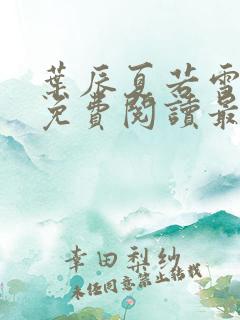 葉辰夏若雪
免費閱讀最
幸田梨紗
未經同意禁止轉載